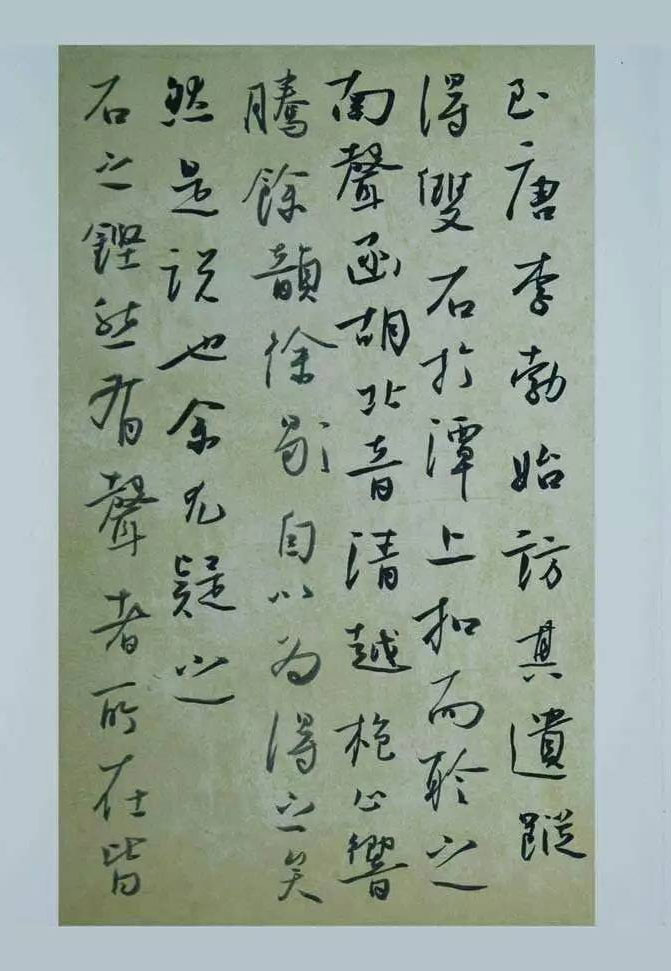 至唐李勃始訪其遺蹤
得雙石於潭上扣而聆之
南聲函胡北音清越枹止響
騰餘韻徐歇自以為得之矣
然是說也余尤疑之
石之鏗然有聲者所在皆